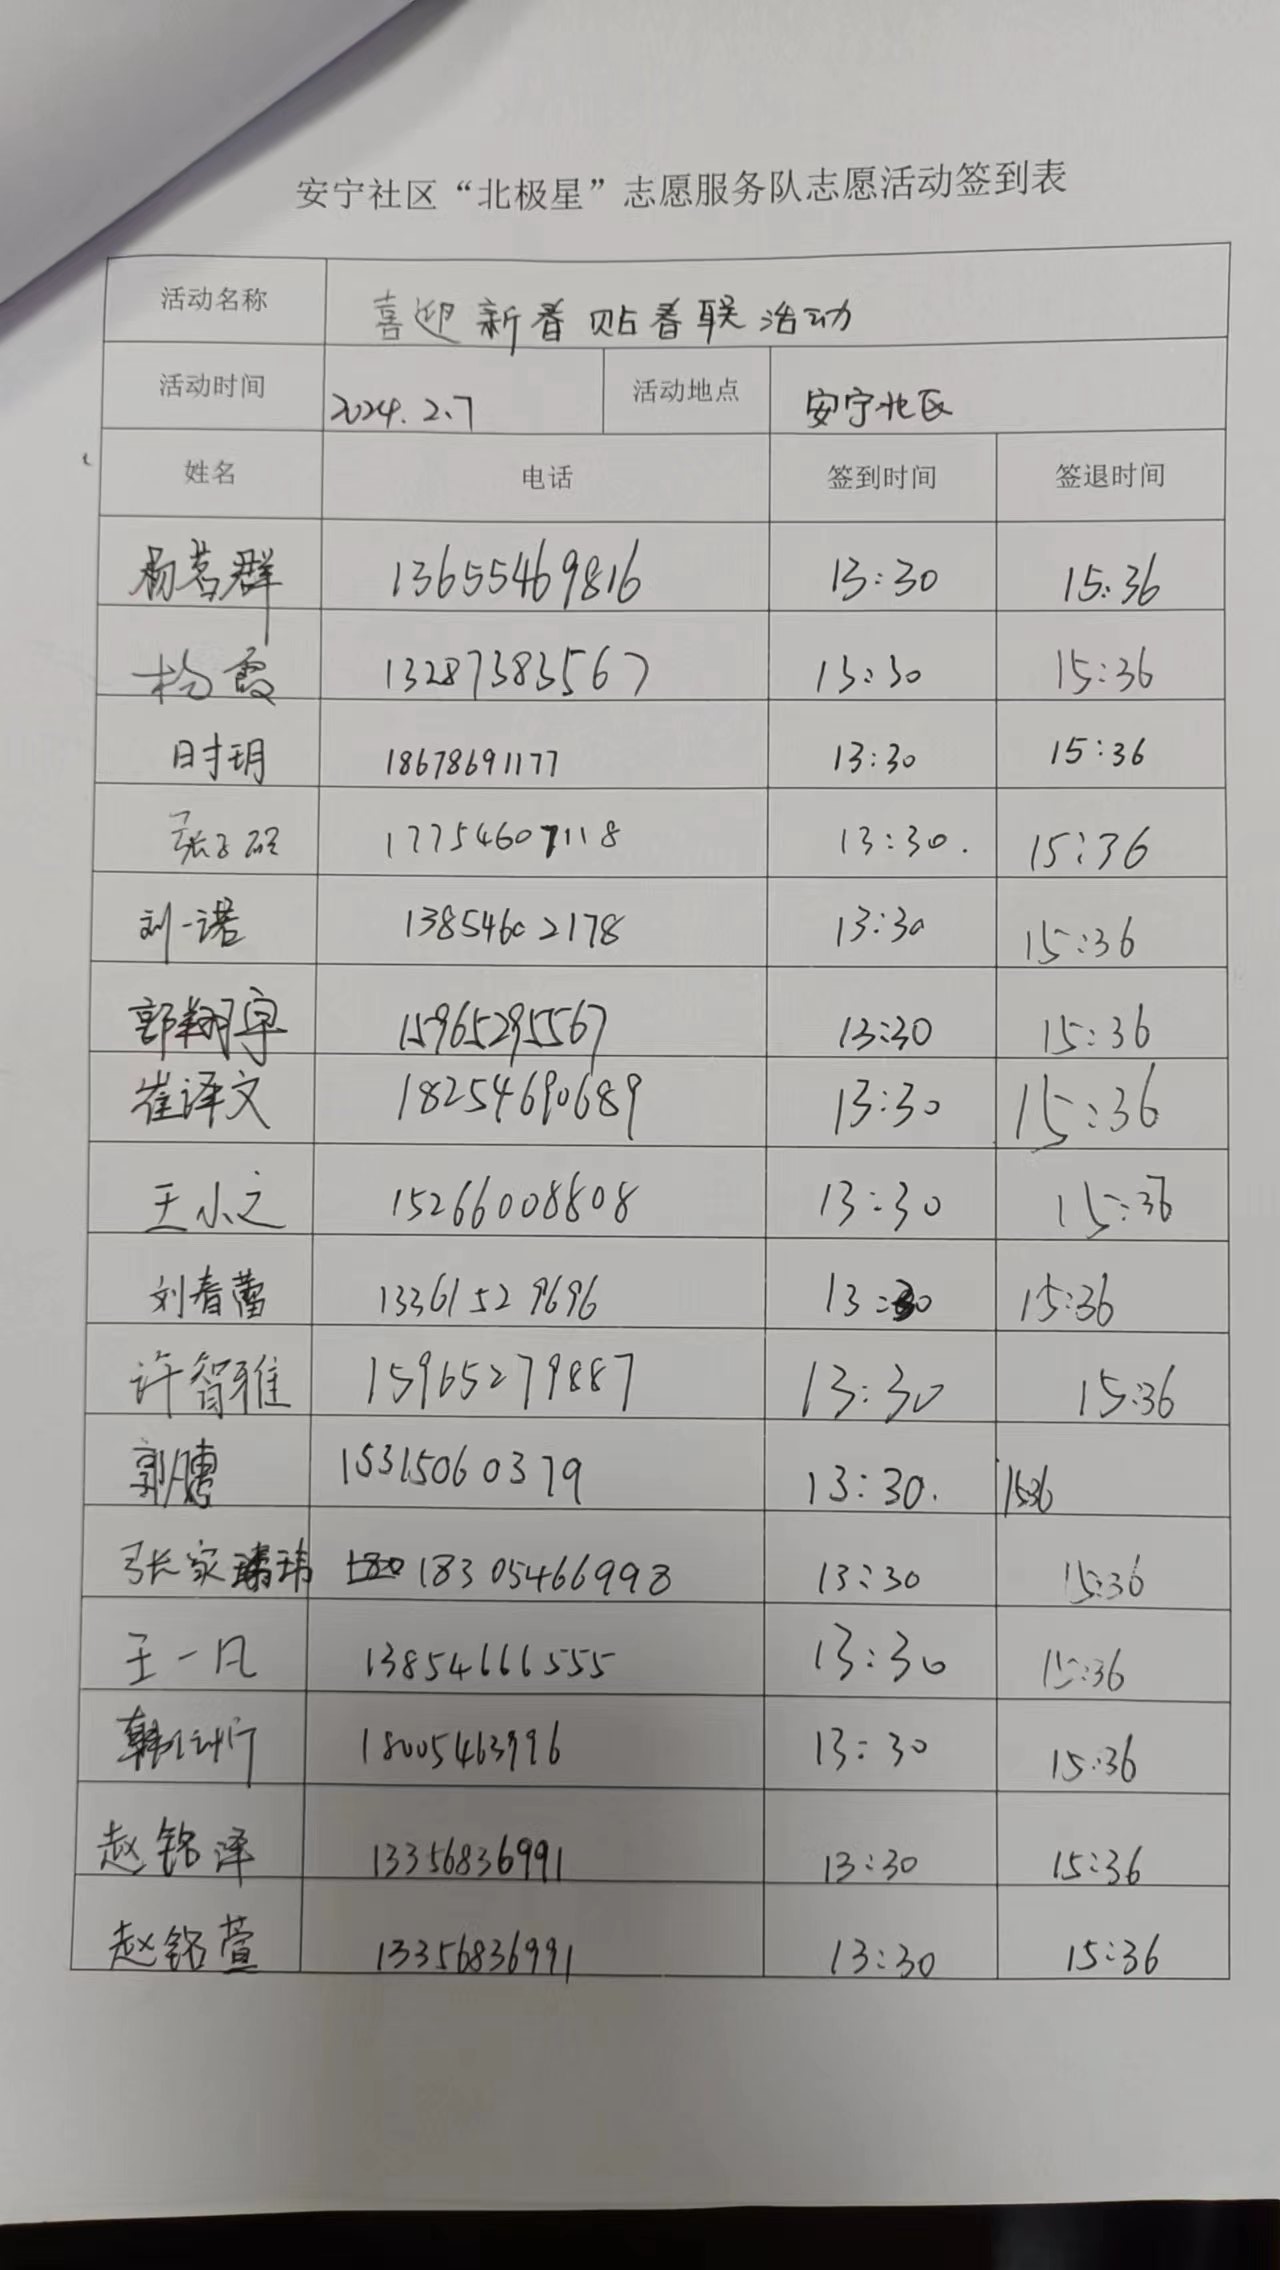 安宁社区“北极星”志愿服务队志愿活动签到表
活动名称 喜迎新春贴春联活动
活动时间 2024.2.7 活动地点 安宁北区
姓名 电话 签到时间 签退时间
杨茗群 13655469816 13:30 15:36
杨霞 13287383567 13:30 15:36
时玥 18678691177 13:30 15:36
张子硕 17754607118 13:30. 15:36
刘一诺 13854602178 13:30 15:36
郭翔宇 15965295567 13:30 15:36
崔译文 18254690689 13:30 15:36
王小之 15266008808 13:30 15:36
刘春蕾 13361529696 13:30 15:36
许智雅 15965279887 13:30 15:36
郭 15315060379 13:30. 15:36
张家玮 18305466998 13:30 15:36
王一凡 13854666555 13:30 15:36
韩 18005463996 13:30 15:36
赵铭泽 13356836991 13:30 15:36
赵铭萱 13356836991 13:30 15:36